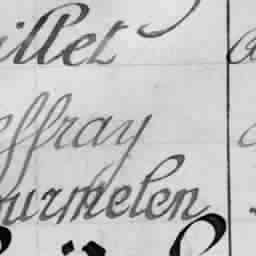 illet
effray
ourmelen